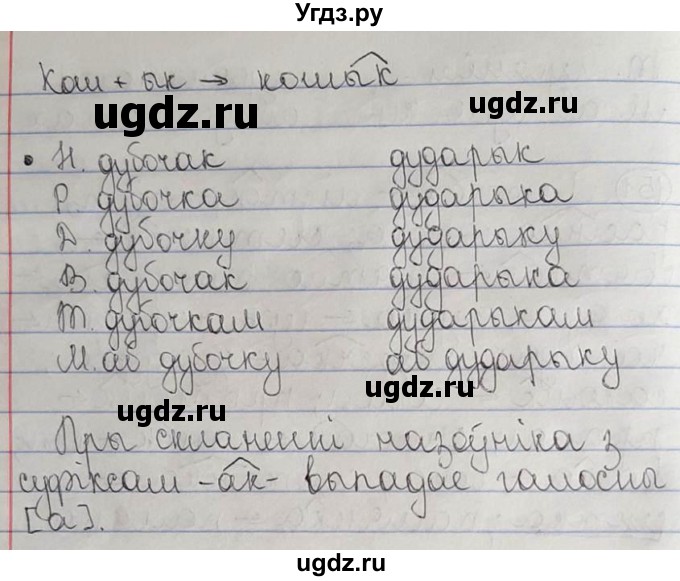 Угдз.ру
Кош + ык → кошык
ugdz.ru ugdz.ru
• Н. дубочак дударык
Р. дубочка дударыка
Д. дубочку дударыку
В. дубочак дударыка
Т. дубочкам дударыкам
М. аб дубочку аб дударыку
ugdz.ru ugdz.ru
Пры скланенні назоўніка з
суфіксам -ак- выпадае галосны
[а].
ugdz.ru ugdz.ru
ugdz.ru